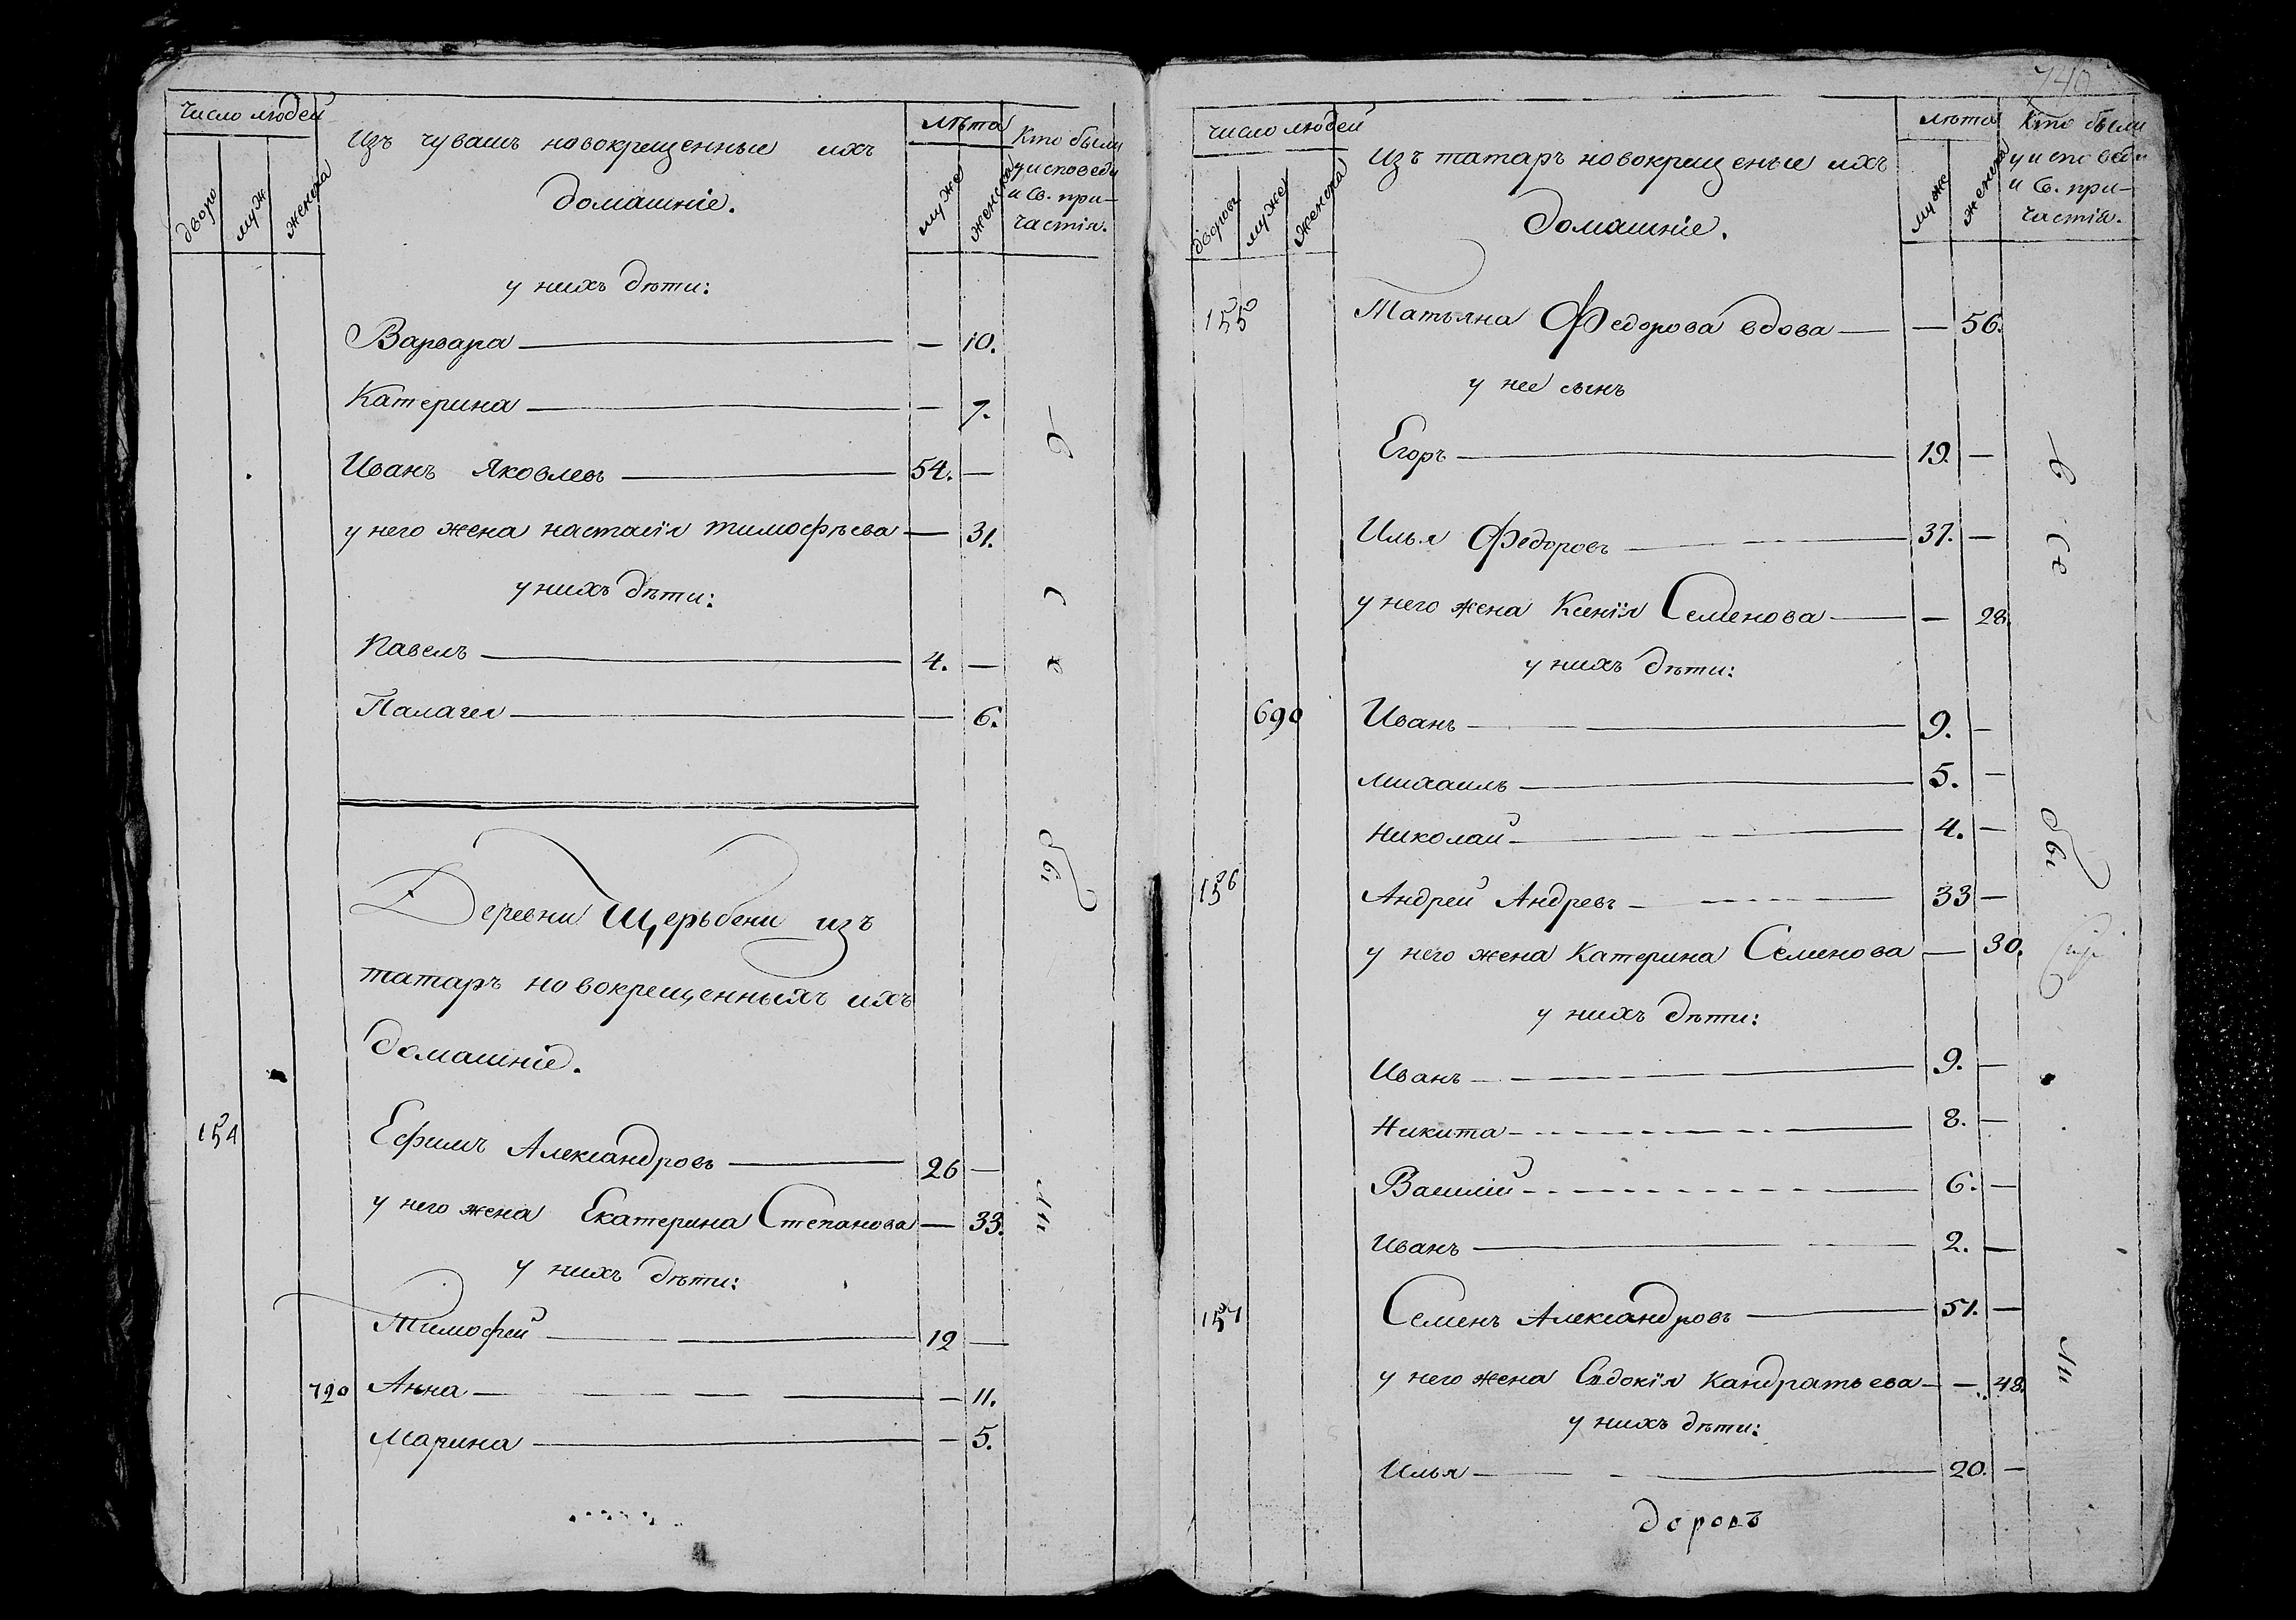 число людей
Изъ чувашъ новокрещенные ихъ
лѣта
Кто были
у исповеди
и Св. при-
частія.
дворо
муж
женска
домашніе.
муже
женска
у нихъ дѣти:
Варвара — 10.
Катерина — 7.
Иванъ Яковлевъ 54. —
у него жена настасія тимофѣева — 31.
у нихъ дѣти:
Павелъ 4. —
Палагея — 6.
Деревни Щерьбени изъ
татаръ новокрещенныхъ ихъ
домашніе.
154 Ефимъ Александровъ 26 —
у него жена Екатерина Степанова — 33.
у нихъ дѣти:
Тимофей 12 —
720 Анна — 11.
Марина — 5.
740
число людей
Изъ татаръ новокрещеные ихъ
лѣта
Кто были
у исповеди
и Св. при-
частія.
дворовъ
муже
женска
домашніе.
муже
женска
155 Татьяна Федорова вдова — 56.
у нее сынъ
Егоръ 19. —
Илья Федоровъ 37. —
у него жена Ксенія Семенова — 28.
у нихъ дѣти:
690 Иванъ 9. —
Михаилъ 5. —
Николай 4. —
156 Андрей Андревъ 33 —
у него жена Катерина Семенова — 30.
у нихъ дѣти:
Иванъ 9. —
Никита 8. —
Василій 6. —
Иванъ 2. —
157 Семенъ Александровъ 51. —
у него жена Евдокія Кандратьева — 48.
у нихъ дѣти:
Илья 20. —